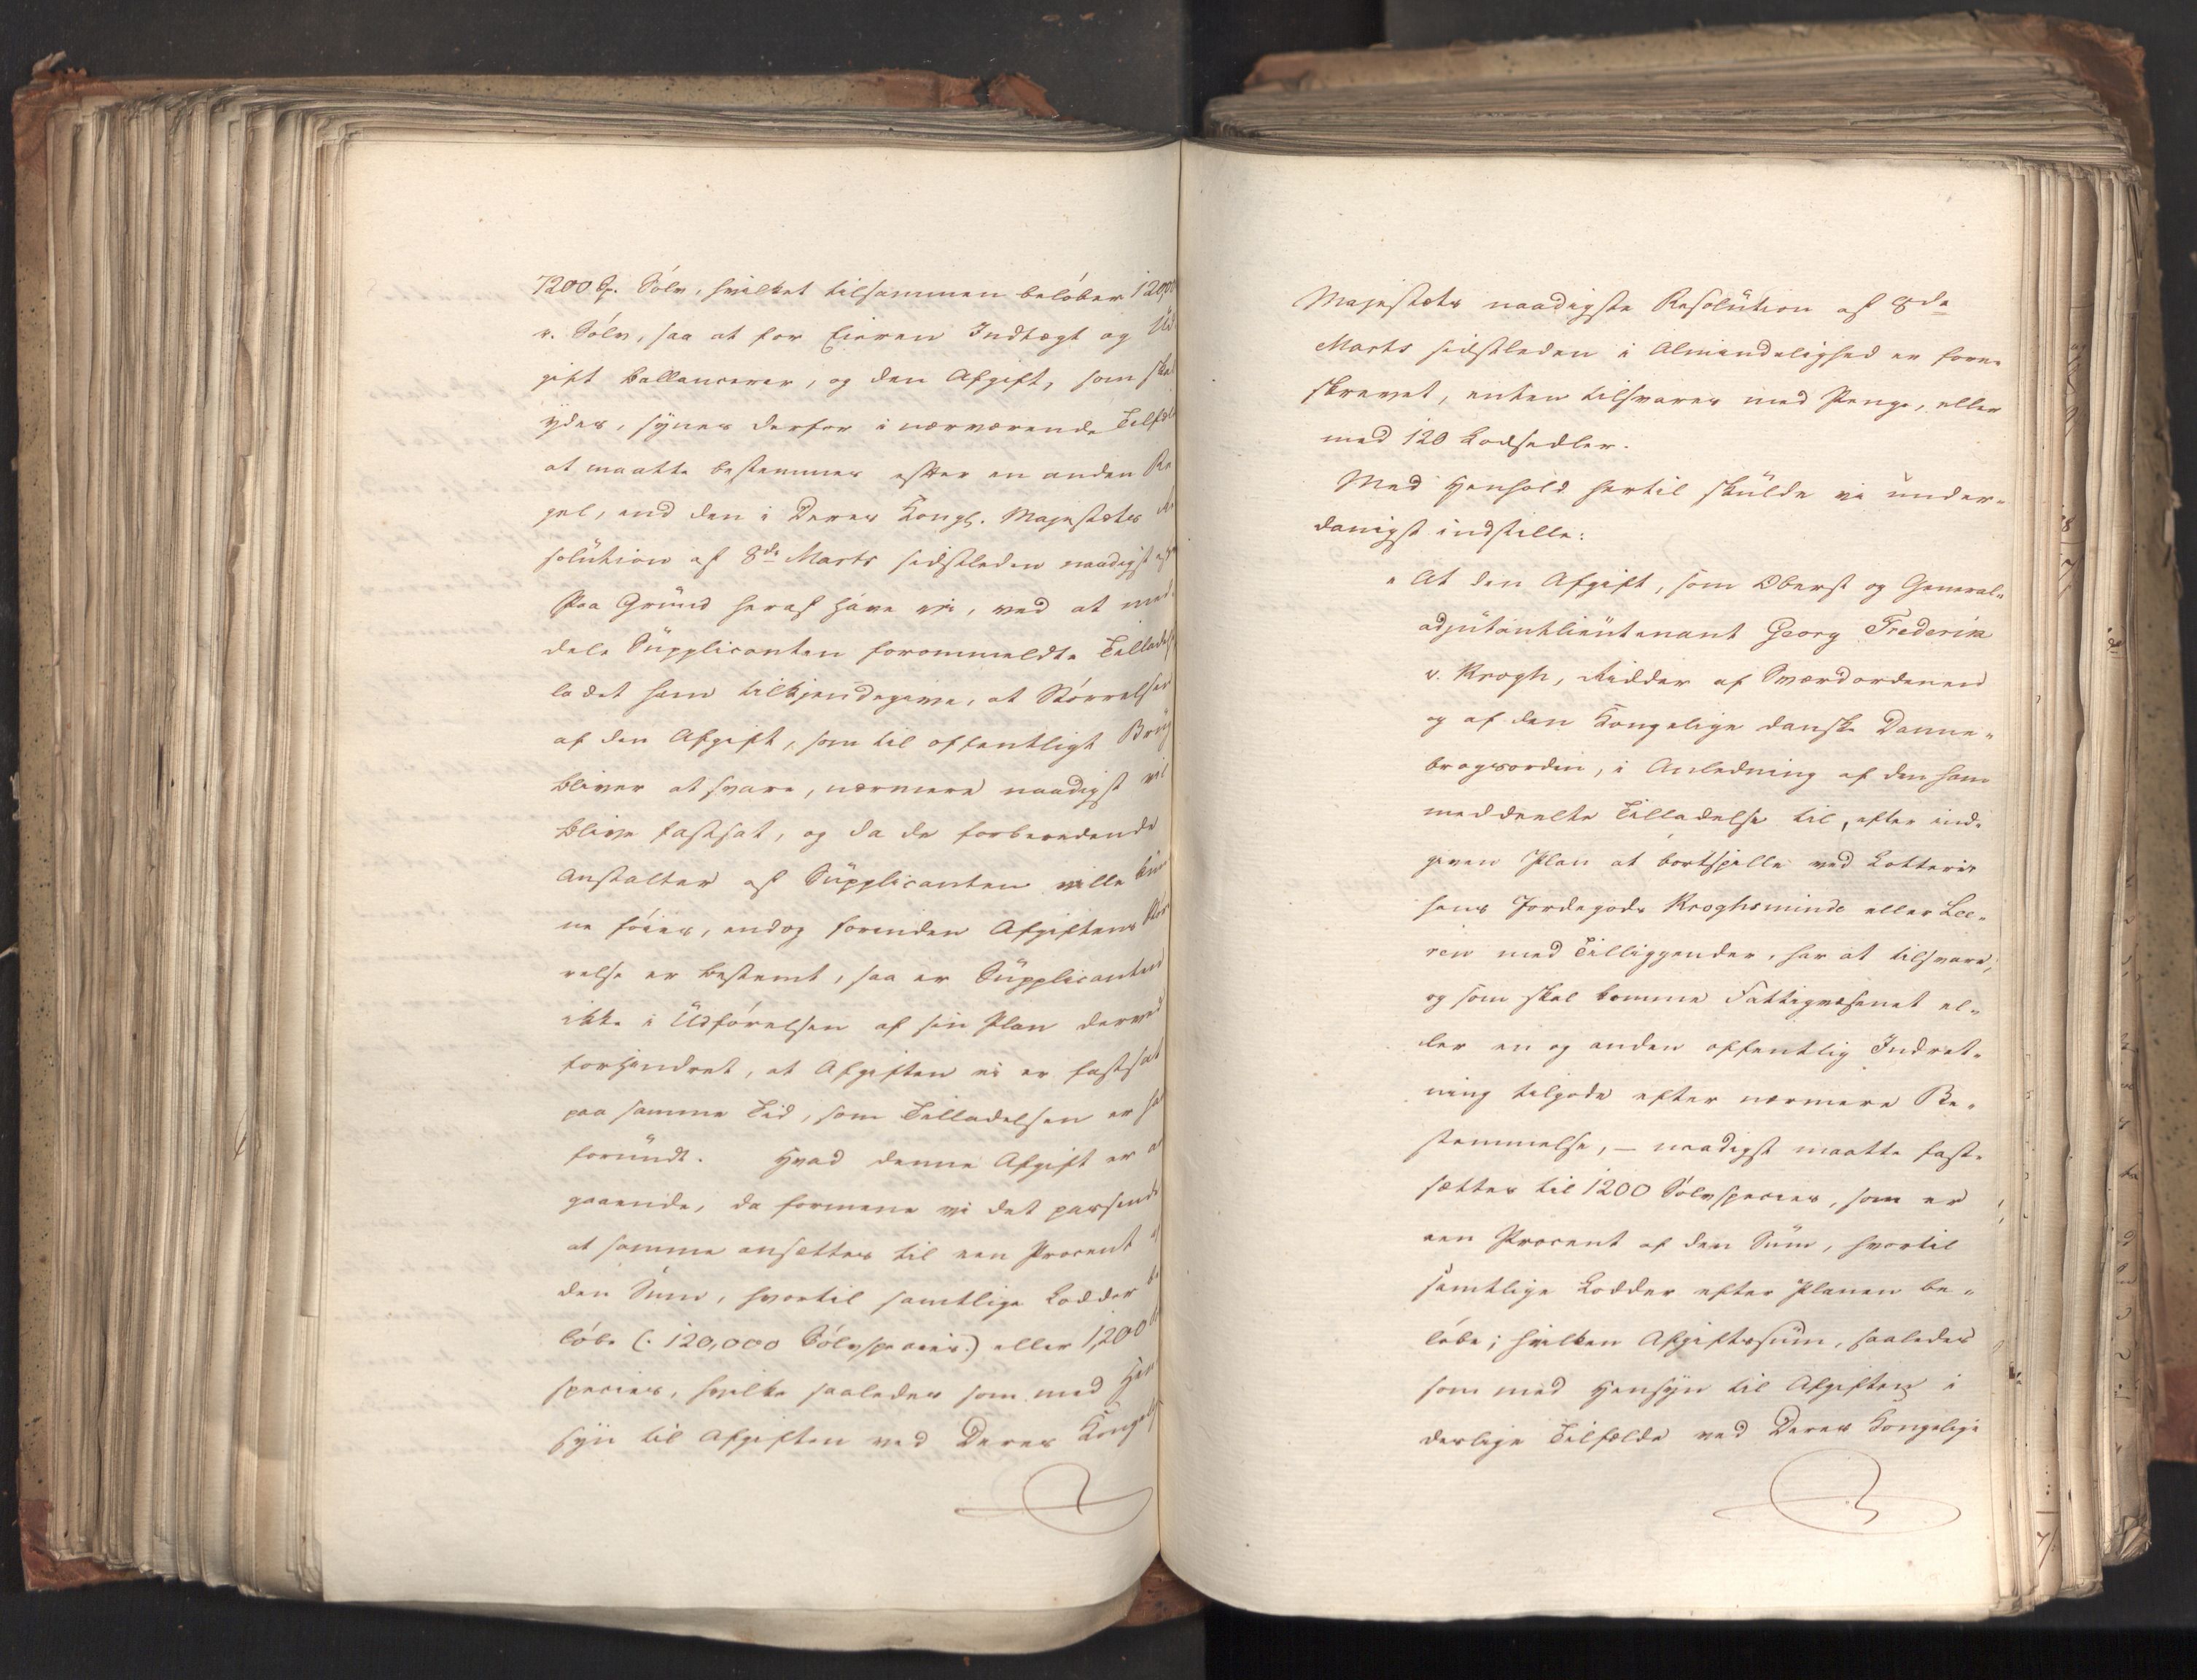 7200 Sp. Sölv, hvilket tilsammen belöber 120,00
r. Sölv, saa at for Eieren Indtægt og Ud
gift ballancerer, og den Afgift, som skal
ydes, synes derfor i nærværende Tilfæl
at maatte bestemmes efter en anden Re
gel, end den i Deres Kongl. Majestæts
solution af 8de Marts sidstleden naadigst
Paa Grund heraf have vi, ved at med-
dele Supplicanten forommeldte Tilladelse
ladet ham tilkjendegive, at Störrelsen
af den Afgift, som til offentligt Brug
bliver at svare, nærmere naadigst vil
blive fastsat, og da de forberedende
Anstalter af Supplicanten ville kun
ne föies, endog forinden Afgiftens Stör
relse er bestemt, saa er Supplicanten
ikke i Udförelsen af sin Plan derved
forhindret, at Afgiften ei er fastsat
paa samme Tid, som Tilladelsen er ha
forundt. Hvad denne Afgift er a
gaaende, da formene vi det passende
at samme ansættes til een Procent a
den Sum, hvortil samtlige Lodder be
löbe (: 120,000 Sölvspecies:) eller 1,200
species, hvilke saaledes som med Hen
syn til Afgiften ved Deres Kongel
Majestæts naadigste Resolution af 8de
Marts sidstleden i Almindelighed er fore-
skrevet, enten tilsvares med Penge, eller
med 120 Lodsedler.
Med Henhold hertil skulde vi under-
danigst indstille:
" At den Afgift, som Oberst og General-
adjutantlieutenant Georg Frederik
v. Krogh, Ridder af Sværdordenen
og af den Kongelige danske Danne-
brogsorden, i Anledning af den ham
meddeelte Tilladelse til, efter ind-
given Plan at bortspille ved Lotterie
hans Jordegods Kroghsminde eller Lee-
ren med Tilliggender, har at tilsvare,
og som skal komme Fattigvæsenet el-
ler en og anden offentlig Indret-
ning tilgode efter nærmere Be-
stemmelse, — naadigst maatte fast-
sættes til 1200 Sölvspecies, som er
een Procent af den Sum, hvortil
samtlige Lodder efter Planen be-
löbe; hvilken Afgiftssum, saaledes
som med Hensyn til Afgiften i
deslige Tilfælde ved Deres Kongelige